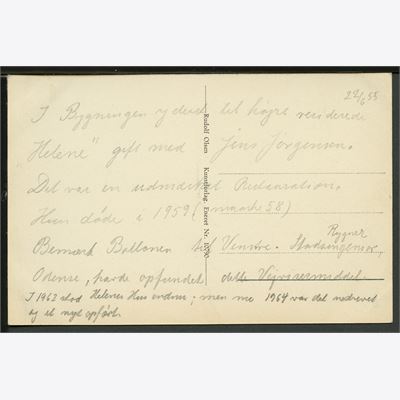 22/6 55
I Bygningen yderst tel højre residerede
Helene" gift med Jens Jørgensen.
Det var en udmærket Restauration.
Hun døde i 1959 (maaske 58)
Bemærk Ballonen til Venstre. Stadsingeniør
Rygner
Odense, havde opfundet dette Vejvisermiddel.
I 1963 stod Helenes Hus endnu; men nu 1964 var det nedrevet
og et nyt opført.
Rudolf Olsen Kunstforlag. Eneret Nr.